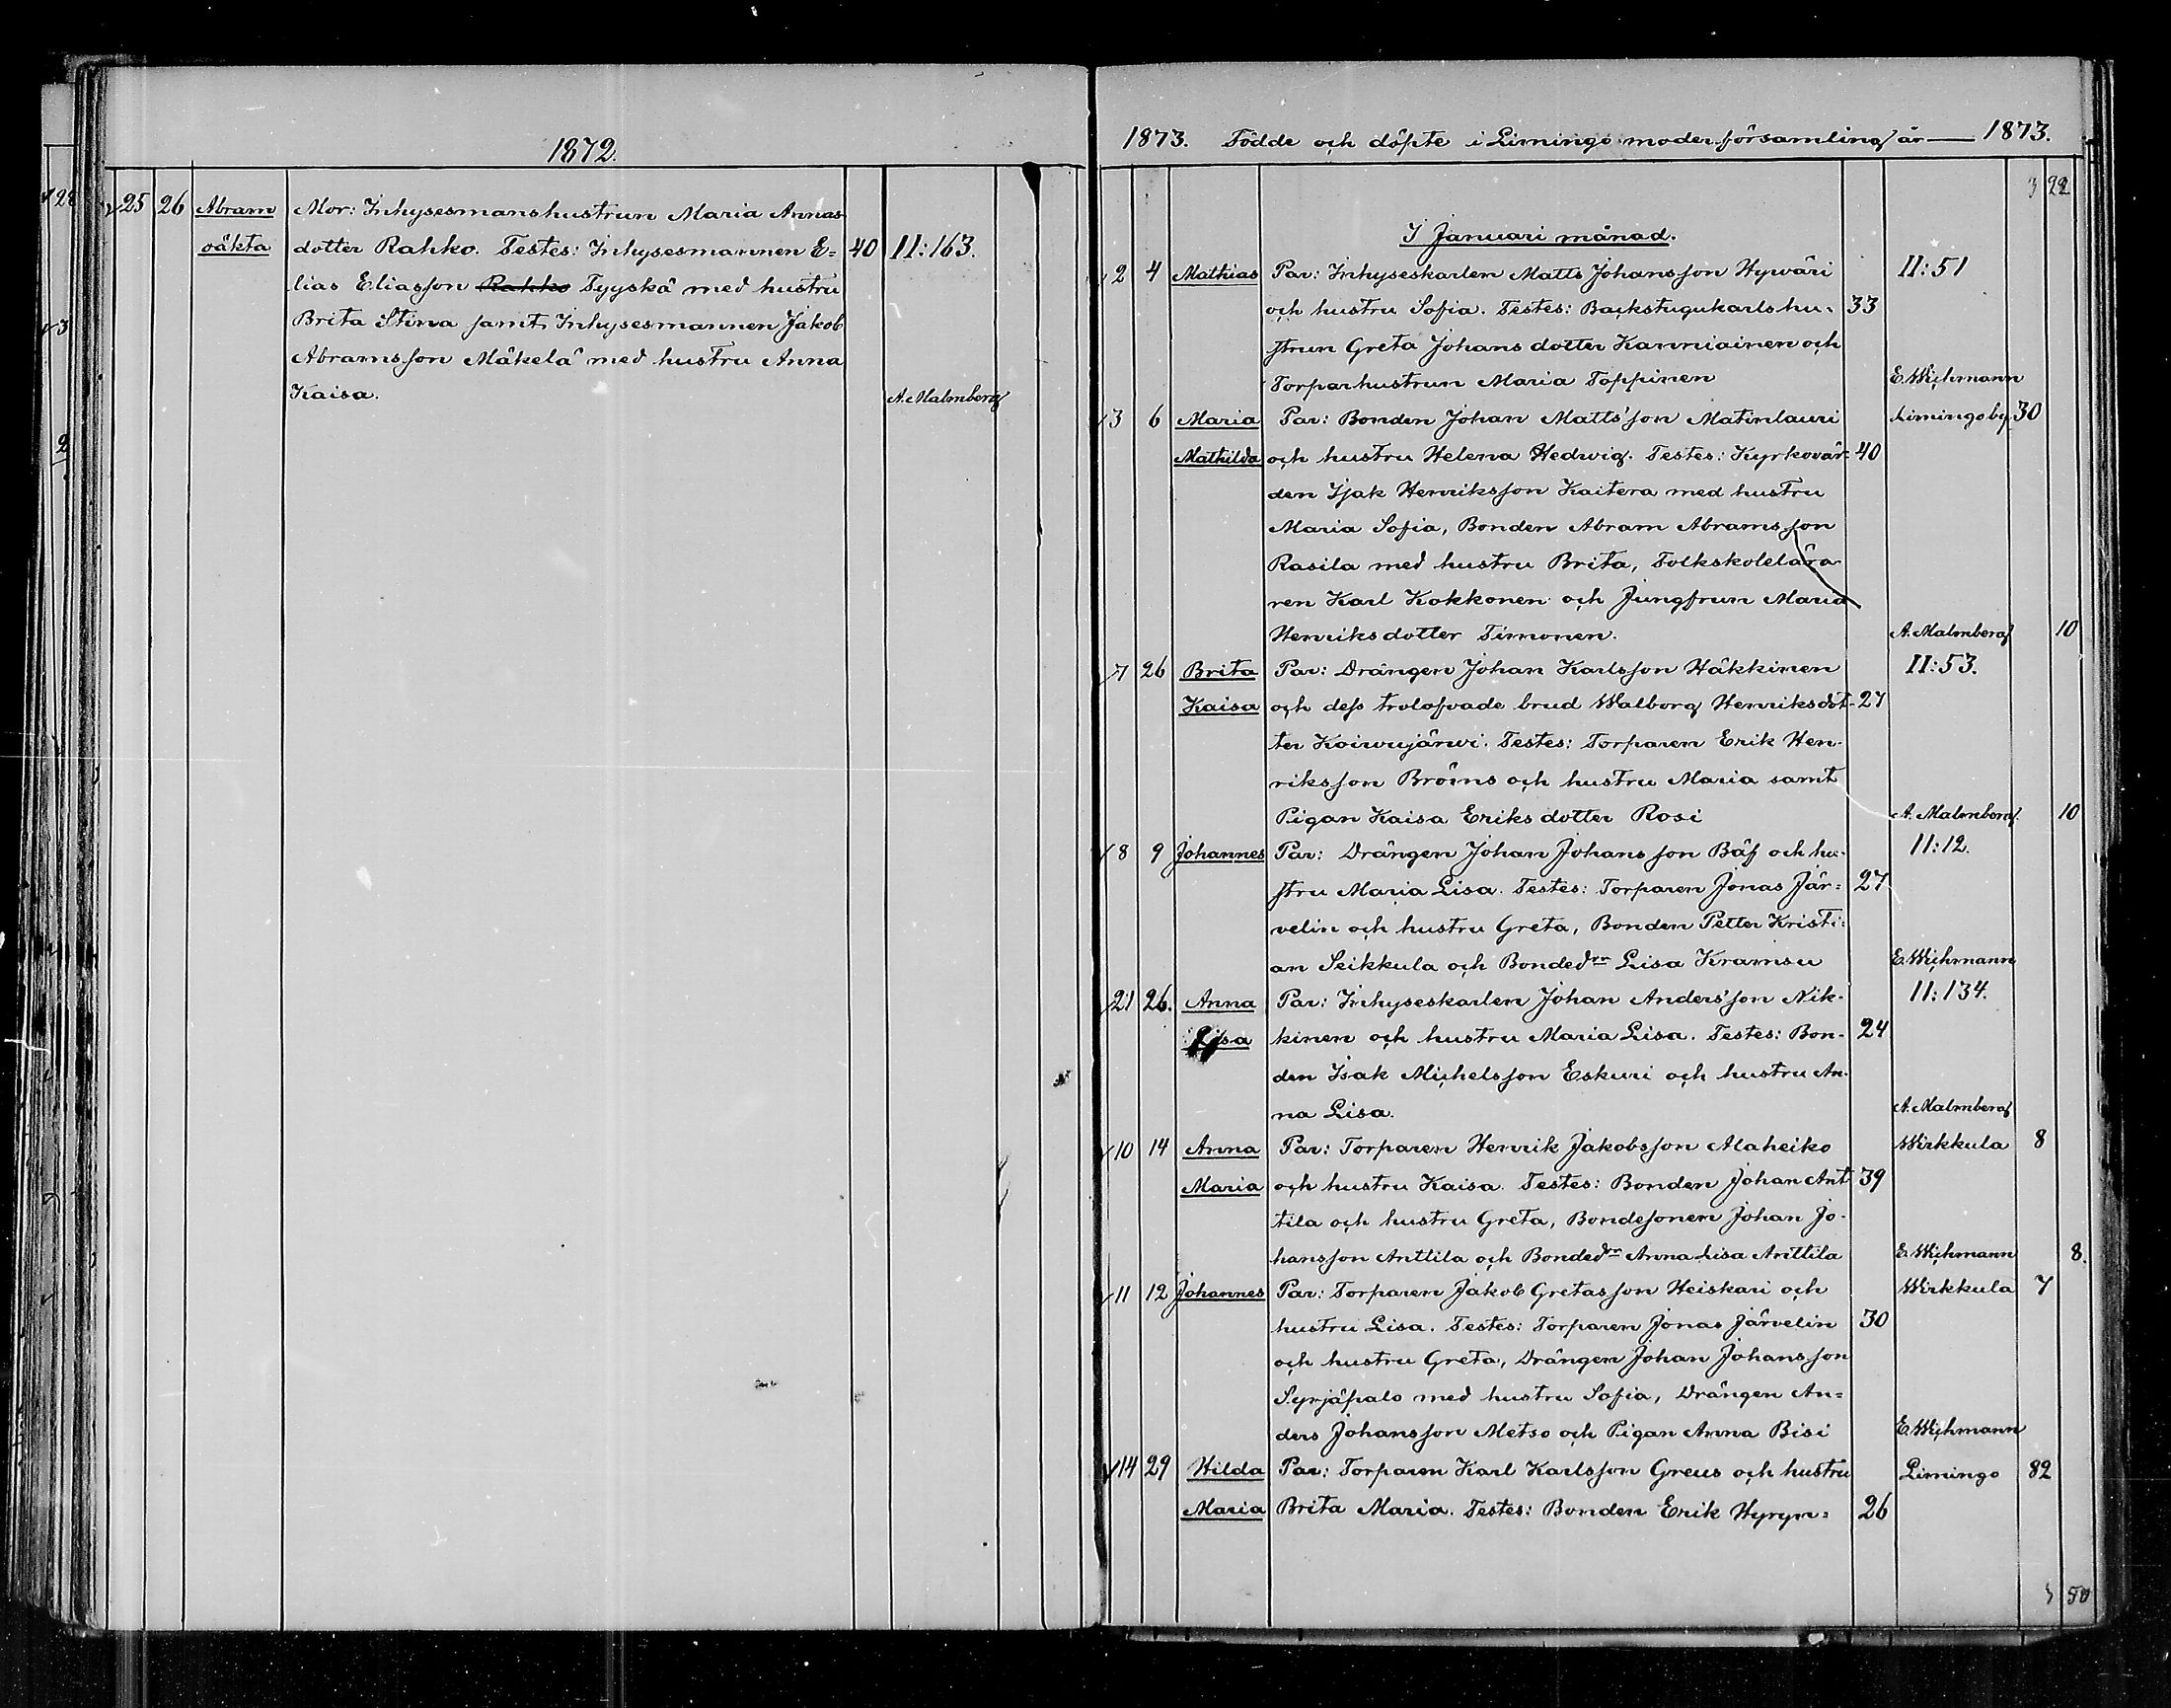 1872.
25 26 Abram Mor: Inhysesmanshustrun Maria Annas-
oäkta dotter Rahko. Testes: Inhysesmannen E= 40 II:163.
lias Eliasson Rahko Tyyskä med hustru
Brita Stina samt Inhysesmannen Jakob
Abramsson Mäkelä med hustru Anna
Kaisa. A. Malmberg
1873. Födde och döpte i Limingo moderförsamling år — 1873.
3 22
I Januari månad.
2 4 Mathias Par: Inhyseskarlen Matts Johansson Hywäri II:51
och hustru Sofia. Testes: Backstugukarlshu- 33
strun Greta Johansdotter Kanniainen och
Torparhustrun Maria Toppinen E. Wichmann
3 6 Maria Par: Bonden Johan Matts'son Matinlauri Limingoby 30
Mathilda och hustru Helena Hedwig. Testes: Kyrkovär- 40
den Isak Henriksson Kaitera med hustru
Maria Sofia, Bonden Abram Abramsson
Rasila med hustru Brita, Folkskolelära-
ren Karl Kokkonen och Jungfrun Maria
Henriksdotter Timonen. A. Malmberg 10
7 26 Brita Par: Drängen Johan Karlsson Häkkinen II:53.
Kaisa och dess trolofvade brud Walborg Henriksdot- 27
ter Koiwujärwi. Testes: Torparen Erik Hen-
riksson Bröms och hustru Maria samt
Pigan Kaisa Eriksdotter Rosi A. Malmberg 10
8 9 Johannes Par: Drängen Johan Johansson Bäf och hu- II:12.
stru Maria Lisa. Testes: Torparen Jonas Jär= 27
velin och hustru Greta, Bonden Petter Kristi-
an Seikkula och Bondedrn Lisa Kramsu E. Wichmann
21 26. Anna Par: Inhyseskarlen Johan Anders'son Nik- II:134.
Lisa kinen och hustru Maria Lisa. Testes: Bon- 24
den Isak Michelsson Eskuri och hustru An-
na Lisa. A. Malmberg
10 14 Anna Par: Torparen Henrik Jakobsson Alaheiko Wirkkula 8
Maria och hustru Kaisa. Testes: Bonden Johan Ant- 39
tila och hustru Greta, Bondesonen Johan Jo-
hansson Anttila och Bondedrn Anna Lisa Anttila E. Wichmann 8.
11 12 Johannes Par: Torparen Jakob Gretasson Heiskari och Wirkkula 7
hustru Lisa. Testes: Torparen Jonas Järvelin 30
och hustru Greta, Drängen Johan Johansson
Syrjäpalo med hustru Sofia, Drängen An=
ders Johansson Metso och Pigan Anna Bisi E. Wichmann
14 29 Hilda Par: Torparen Karl Karlsson Greus och hustru Limingo 82
Maria Brita Maria. Testes: Bonden Erik Hyryn= 26
3 50